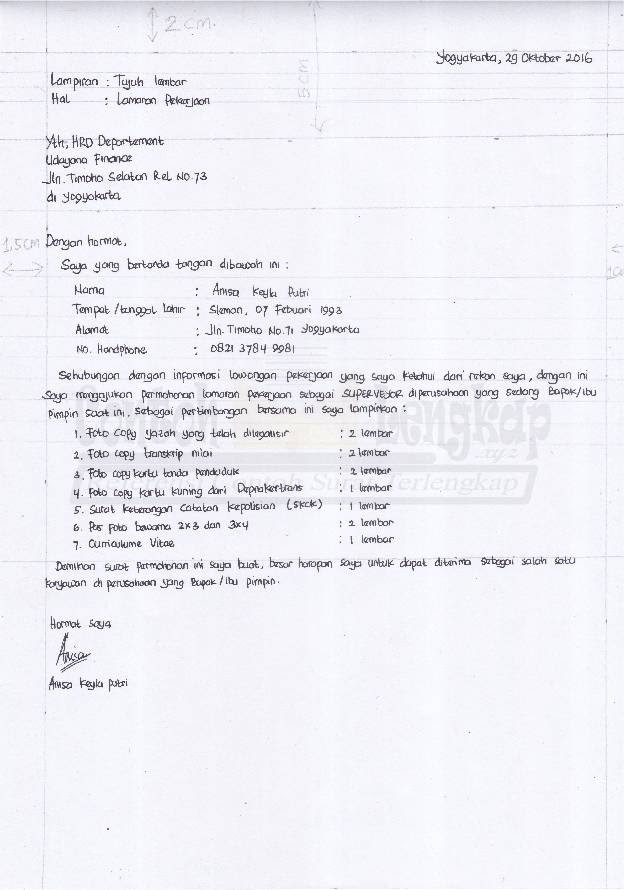 2 cm.
Yogyakarta, 29 Oktober 2016
5 cm
Lampiran : Tujuh lembar
Hal : Lamaran Pekerjaan
Yth, HRD Departement
Udayana Finance
Jln. Timoho Selatan Rel No.73
di Yogyakarta
1,5 CM Dengan hormat,
Saya yang bertanda tangan dibawah ini :
Nama : Anisa Keyla Putri
Tempat /tanggal lahir : Sleman, 07 Febuari 1993
Alamat : Jln. Timoho No.71 Yogyakarta
No. Handphone : 0821 3784 9981
Sehubungan dengan informasi lowongan pekerjaan yang saya ketahui dari rekan saya, dengan ini
Saya mengajukan permohonan lamaran pekerjaan sebagai SUPERVESOR diperusahaan yang sedang Bapak/ibu
pimpin saat ini, sebagai pertimbangan bersama ini saya lampirkan :
1. Foto copy yazah yang telah dilegalisir : 2 lembar
2. Foto copy transkrip nilai : 2 lembar
3. Foto copy kartu tanda penduduk : 2 lembar
4. Foto copy kartu kuning dari Depnakertrans : 1 lembar
5. Surat keterangan catatan kepolisian (skck) : 1 lembar
6. Pas foto bewarna 2x3 dan 3x4 : 2 lembar
7. Curriculume Vitae : 1 lembar
Demikian surat permohonan ini saya buat, besar harapan saya untuk dapat diterima sebagai salah satu
karyawan di perusahaan yang Bapak/ibu pimpin.
Hormat saya
Anisa
Anisa Keyla putri